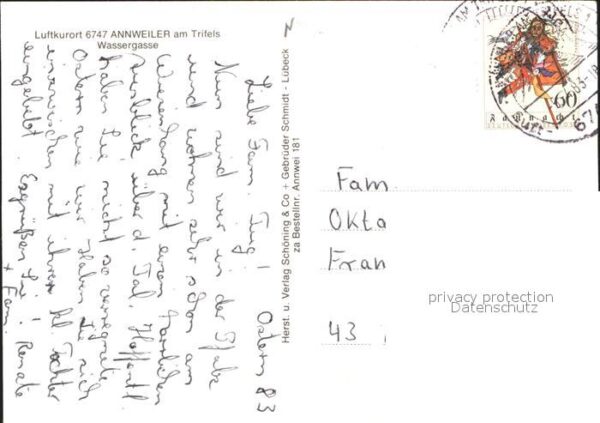 Luftkurort 6747 ANNWEILER am Trifels
Wassergasse
Ostern 83
Liebe Fam. Jung!
Nun sind wir in der Pfalz
und wohnen sehr schön am
Wiesenhang mit einen herrlichen
Ausblick über d. Tal. Hoffentl.
haben Sie nicht so verregnete
Ostern wie wir. Haben Sie sich
inzwischen mit ihrer kl. Tochter
eingelebt. Es grüßen Sie! Renate
+ Fam.
Herst. u. Verlag Schöning & Co + Gebrüder Schmidt - Lübeck
za Bestellnr. Annwei 181
60
Fam.
Okta
Fran
43
privacy protection
Datenschutz